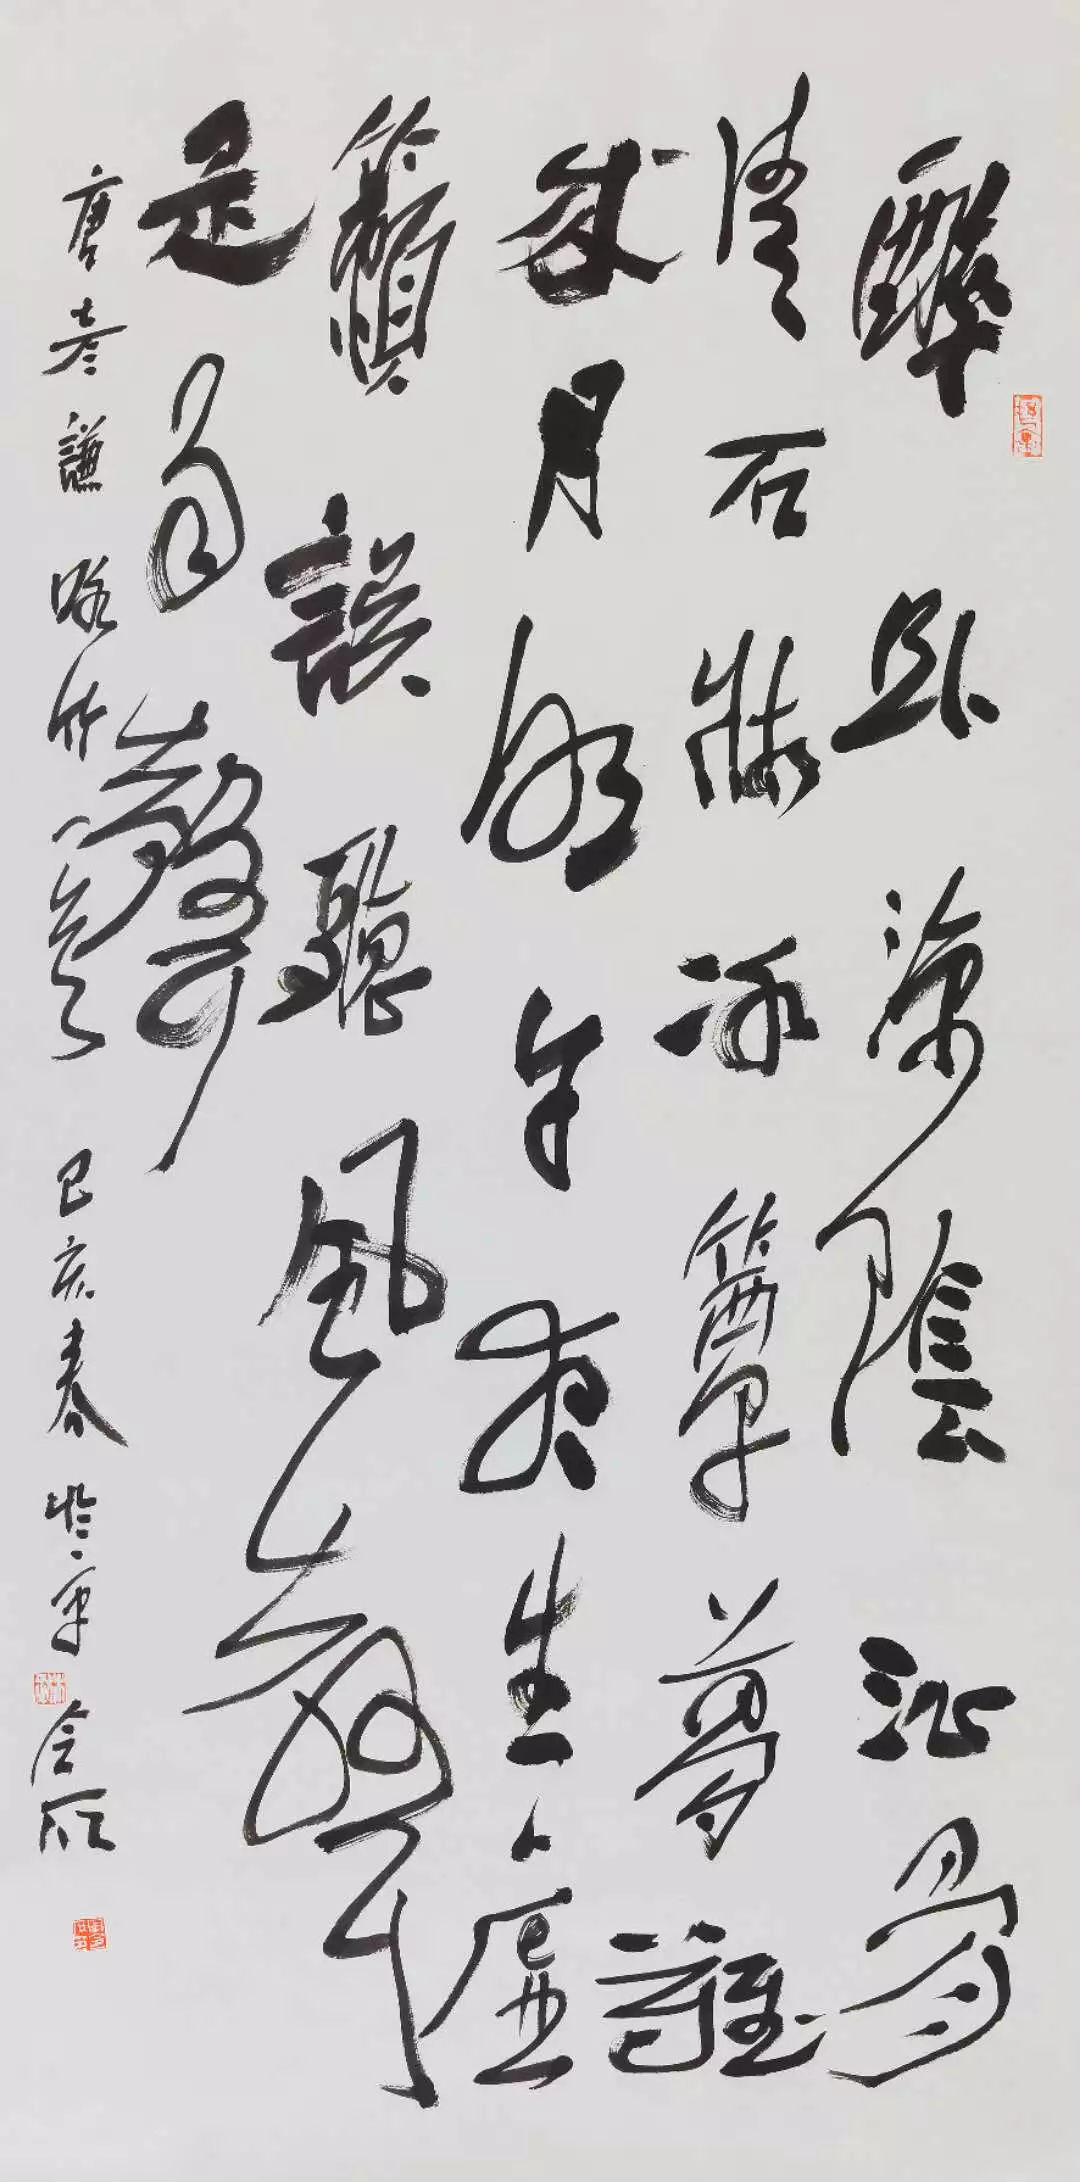 醉卧涼陰沁骨
清石牀冰簟夢難
成月明午夜生虛
籟誤聽風聲
是雨聲
唐彥謙咏竹 己亥春於京